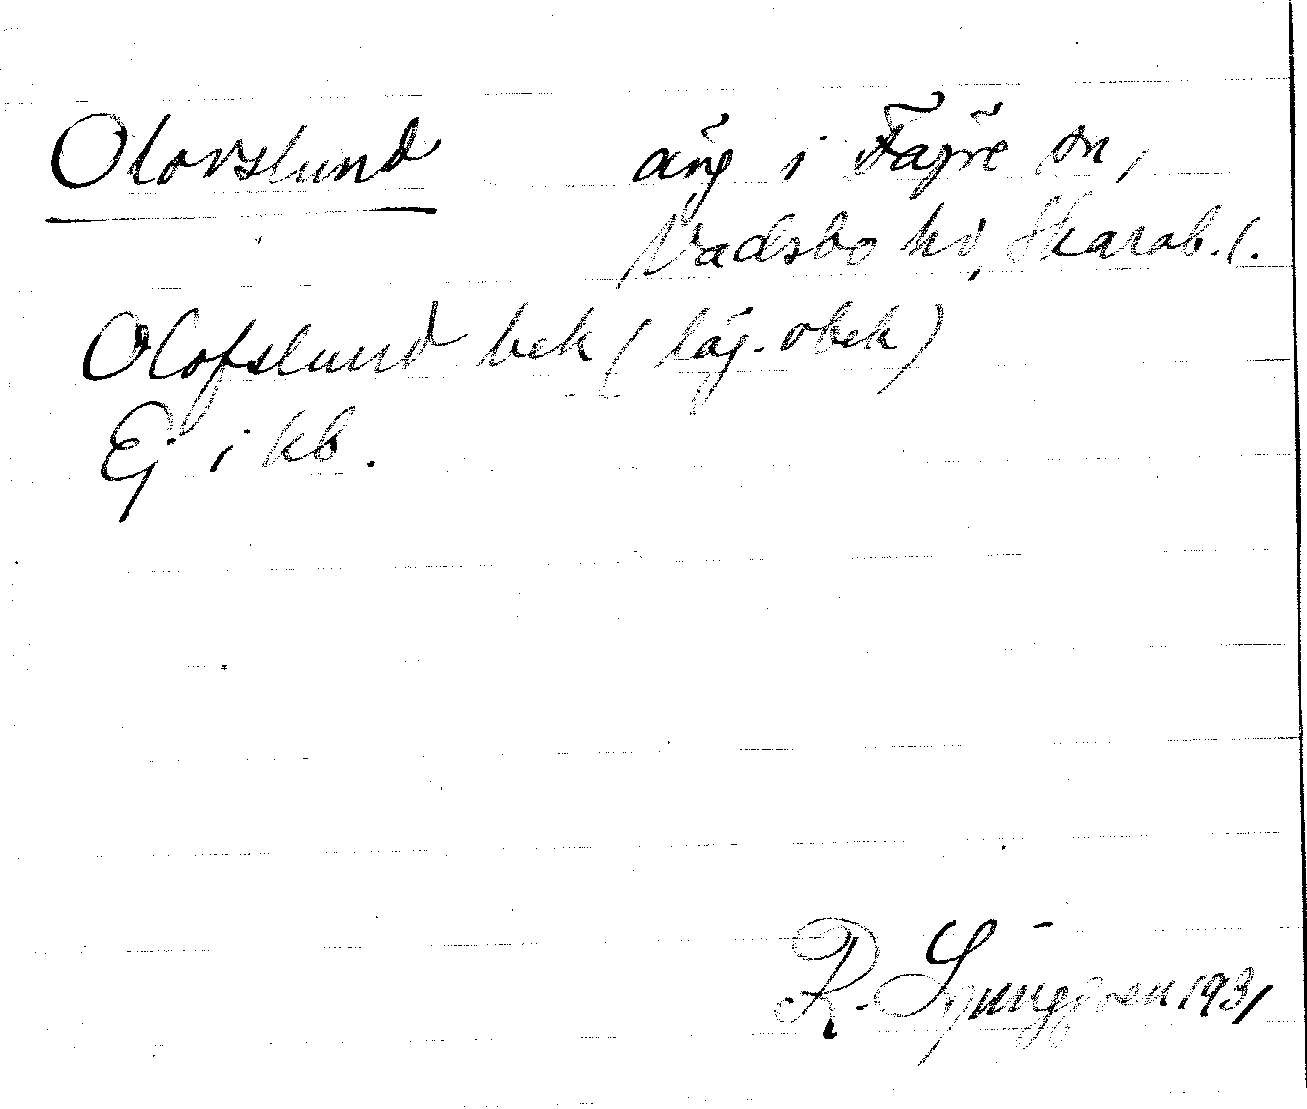 Olovslund äng i Fägre sn,
Vadsbo hd, Skarab. l.
Olofslund bek (läg. obek)
Ej i kb.
R. Ljunggren 1931